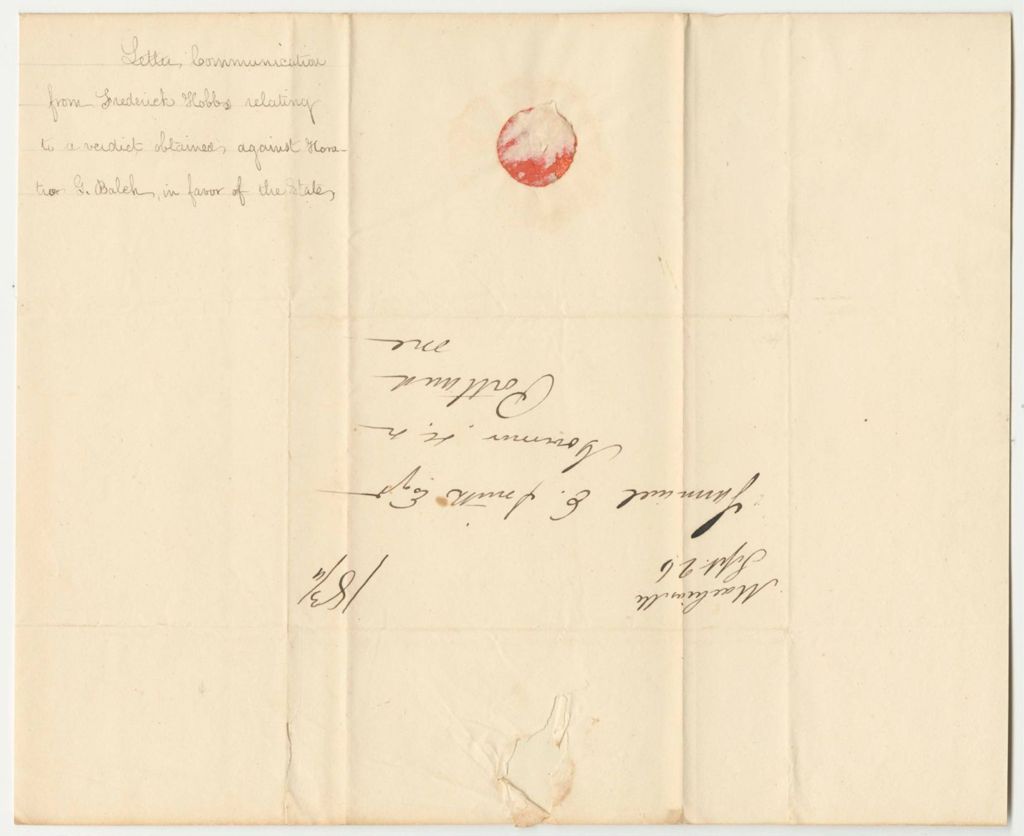 Letter, Communication
from Frederick Hobbs relating
to a verdict obtained, against Hora-
tio G. Balch, in favor of the State,
Machias
Sept. 26
18 3/4
Samuel E. Smith Esqr
Governor &c &
Portland
Me